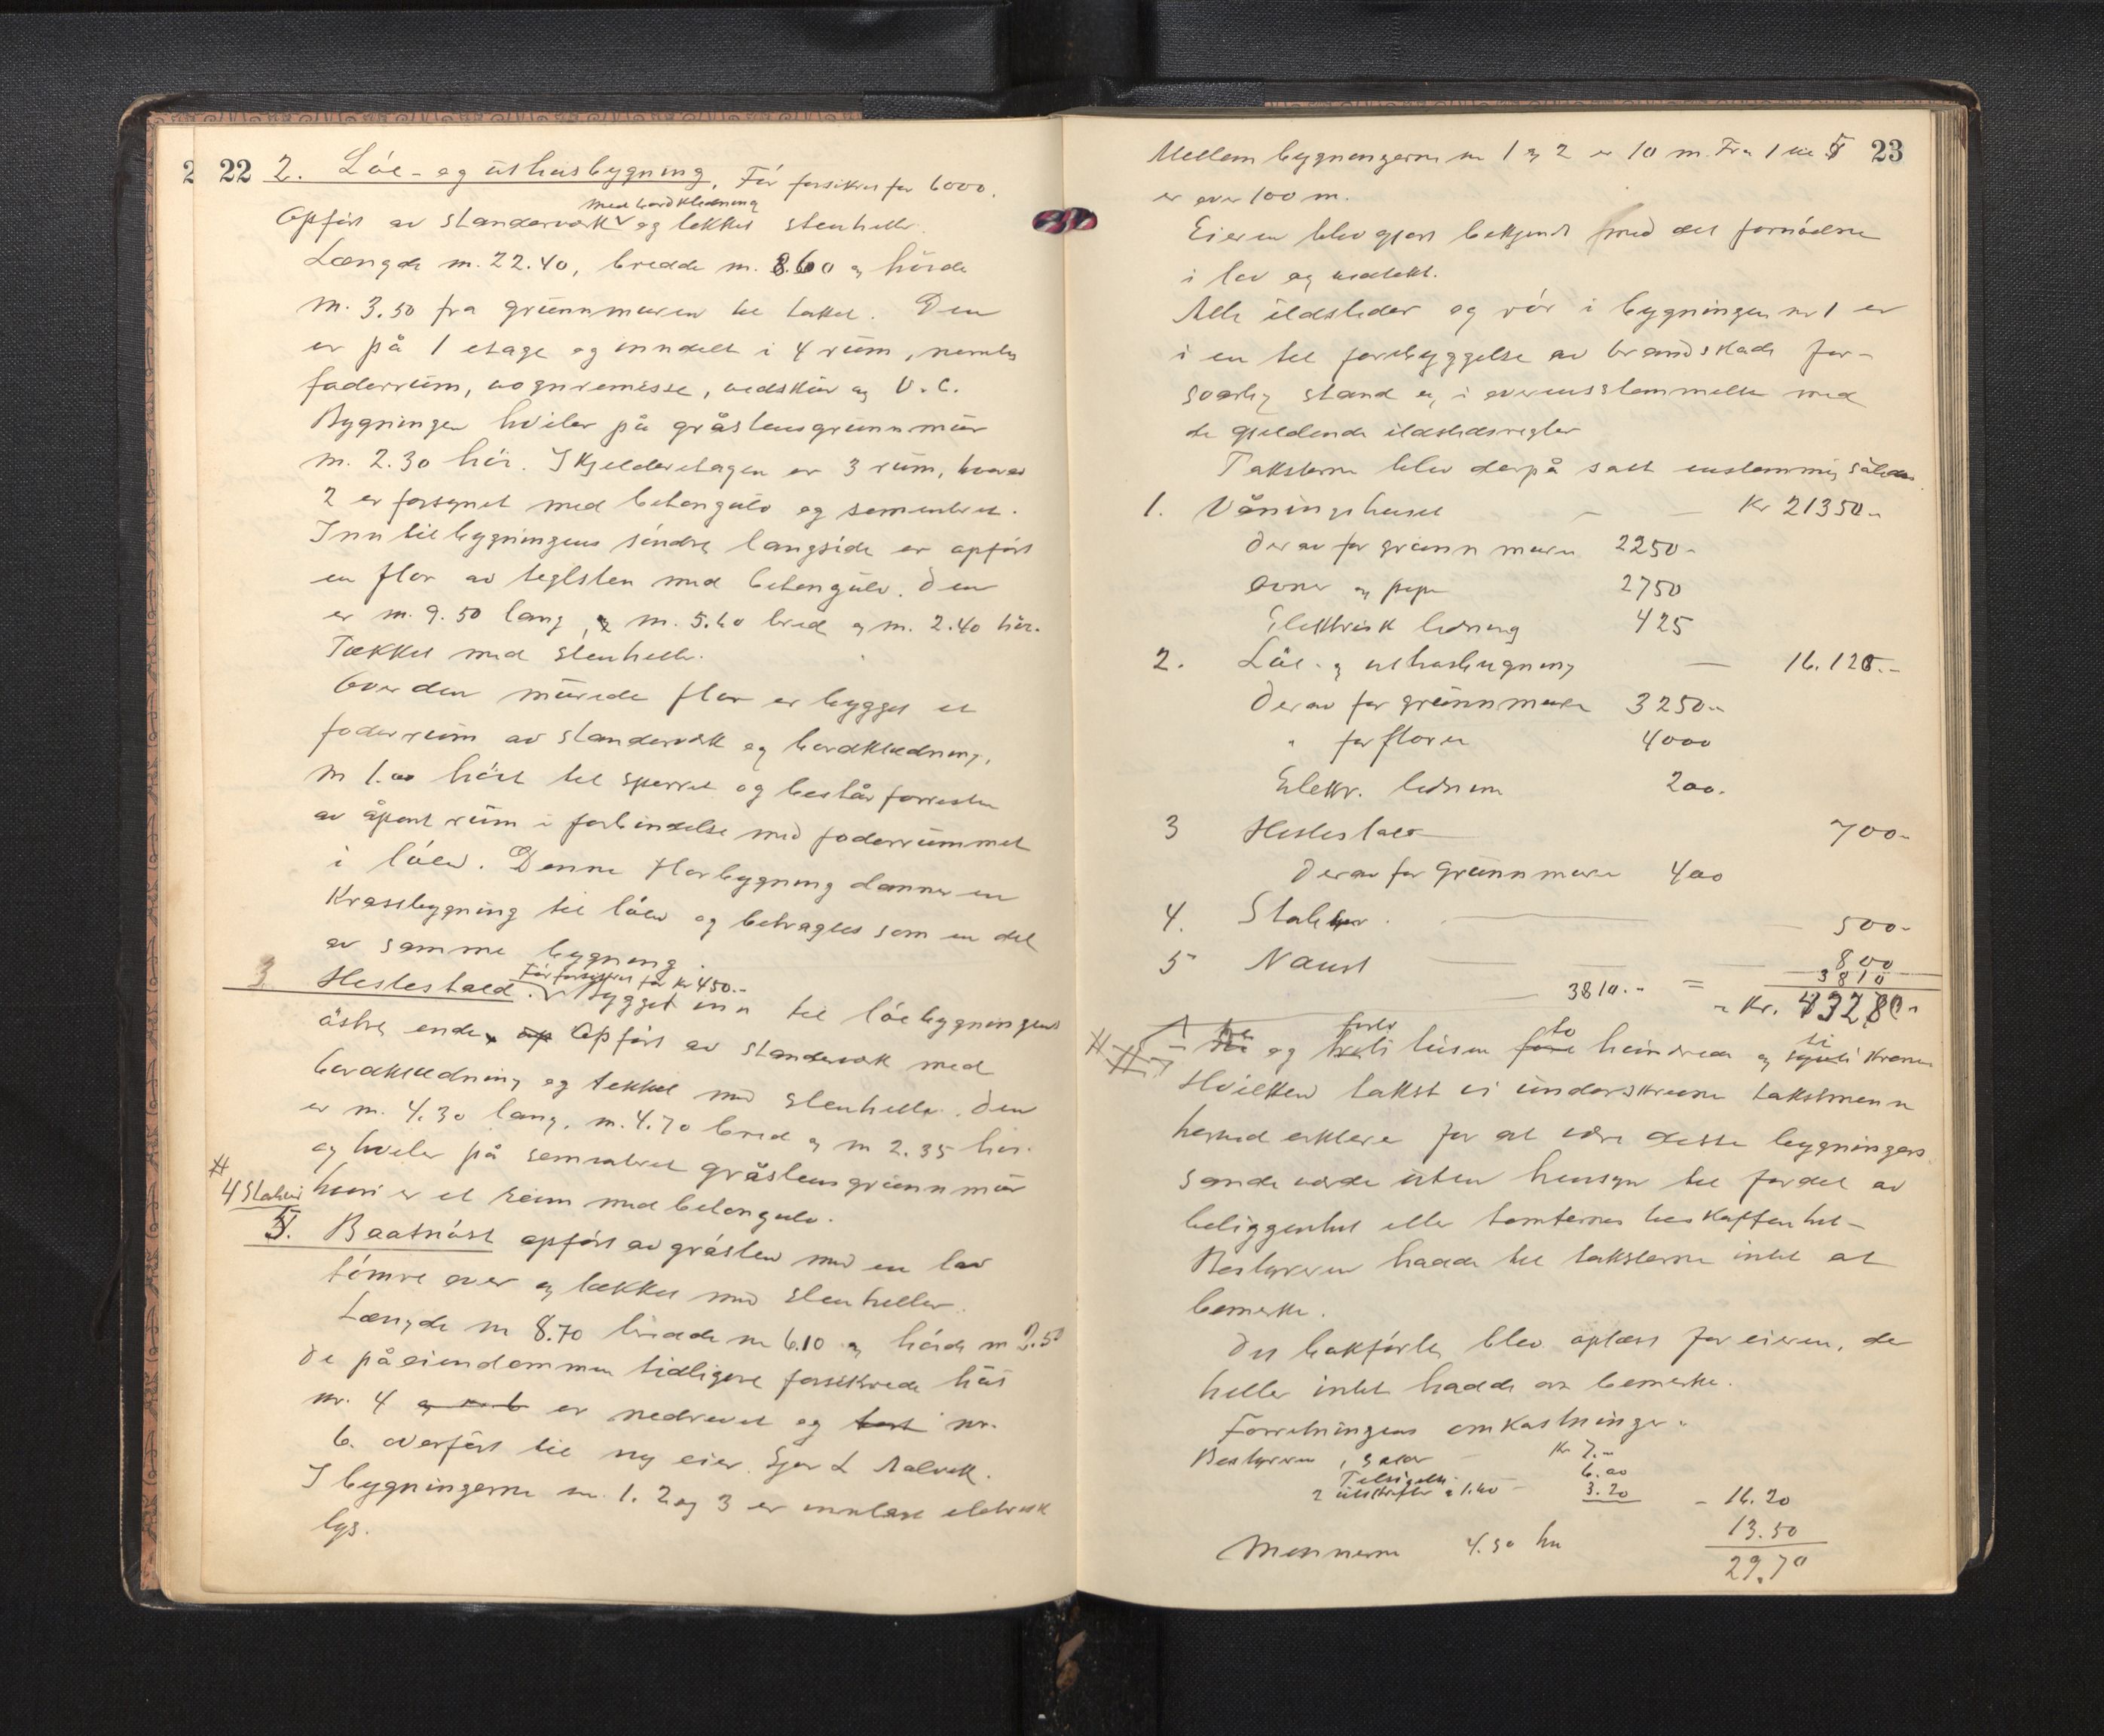 2
22
2. Löe- og uthusbygning. Får forsikres for 6000.
med bordkledning
Opført av standerverk og tekket stenheller.
Længde m. 22.40, bredde m. 8.60 og höide
m. 3.50 fra grunnmuren til taket. Den
er på 1 etage og inndelt i 4 rum, nemlig
foderrum, vognremisse, vedskur og V.C.
Bygningen hviler på gråstensgrunnmur
m. 2.30 höi. I kjelderetagen er 3 rum, hvorav
2 er forsynet med betongulv og sementeret.
Inn til bygningens söndre langside er opført
en flor av teglsten med betongulv. Den
er m. 9.50 lang, m. 5.40 bred og m. 2.40 höi.
Tækket med stenheller.
Over den murede flor er bygget et
foderrum av standerverk og bordkledning,
m 1.00 höit til sperret og består forresten
av åpent rum i forbindelse med foderrummet
i löen. Denne florbygning danner en
krossbygning til löen og betragtes som en del
av samme bygning.
Får forsikres for kr 450.-
3 Hestestald. Bygget inn til löebygningens
östre ende. Opført av standerverk med
bordkledning og tekket med stenheller. Den
er m. 4.30 lang, m. 4.70 bred og m 2.35 höi.
og hviler på sementeret gråstensgrunnmur
#
4 hvori er et rum med betongulv.
5. Baatnöst opført av gråsten med en lav
tömre over og tækket med stenheller.
Længde m 8.70 bredde m 6.10 og höide m 2.50
De på eiendommen tidligere forsikrede hus
nr. 4 er nedrevet og nr.
6. overført til ny eier.
I bygningerne nr. 1. 2 og 3 er innlagt elektrisk
lys.
23
Mellem bygningerne nr 1 og 2 er 10 m. Fra 1 til 5
er over 100 m.
Eieren blev gjort bekjendt med det fornödne
i lov og vedtekt.
Alle ildsteder og rör i bygningen nr 1 er
i en til forebyggelse av brandskade for-
svarlig stand og i overensstemmelse med
de gjeldende ildstedsregler
Taksterne blev derpå satt enstemmig således
1. Våningshuset — — Kr 21350.-
Derav for grunnmuren 2250.-
Ovner og piper 2750
Elektrisk ledning 425
2. Löe- og uthusbygning — 16.120.-
Derav for grunnmuren 3250.-
" for floren 4000
Elektr. ledning 200.
3 Hestestald 700.-
Derav for grunnmuren 400
4. 500.-
5 Naust — — 800
3810.- = 3810
- Kr.
# og tusen hundrede og kroner
Hvilken takst vi underskrevne takstmenn
herved erklære for at være disse bygningers
sande værde uten hensyn til fordel av
beliggenhet eller tomternes beskaffenhet-
Bestyreren hadde til taksterne intet at
bemerke.
Det bakførte blev oplæst for eieren, de
heller intet hadde at bemerke.
Forretningens omkostninger.
Bestyreren, - Kr 7.-
6.00
2 utskrifter a 1.60 - 3.20 - 16.20
Mennerne 4.50 hv 13.50
29.70